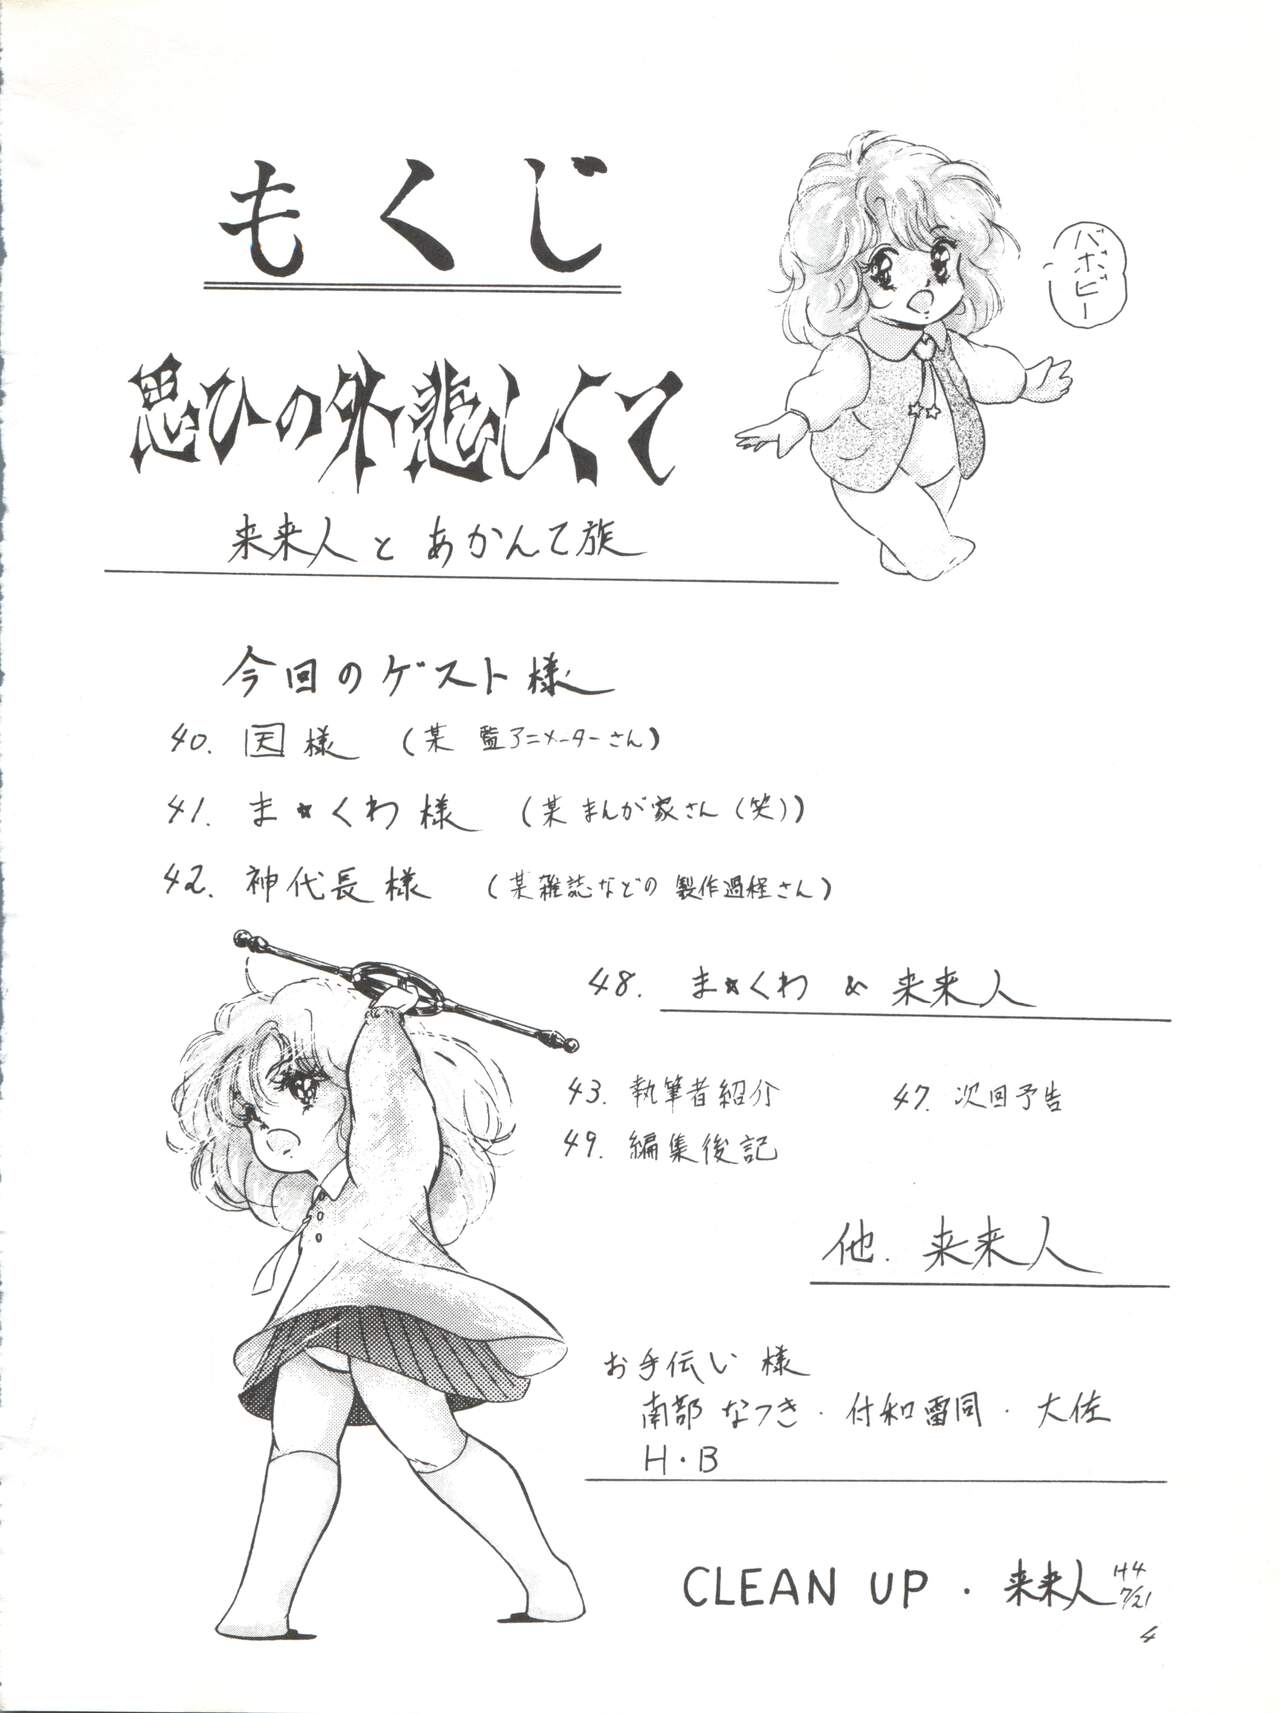 もくじ
バボビー
思ひの外悲しくて
来来人と あかんて族
今回のゲスト様
40. 国様 (某 監アニメーターさん)
41. ま☆くわ様 (某 まんが家さん(笑))
42. 神代長様 (某雑誌などの 製作過程さん)
48. ま☆くわ & 来来人
43. 執筆者紹介 47. 次回予告
49. 編集後記
他. 来来人
お手伝い様
南部 なつき・付和雷同・大佐
H・B
CLEAN UP・来来人 H4 7/21
4